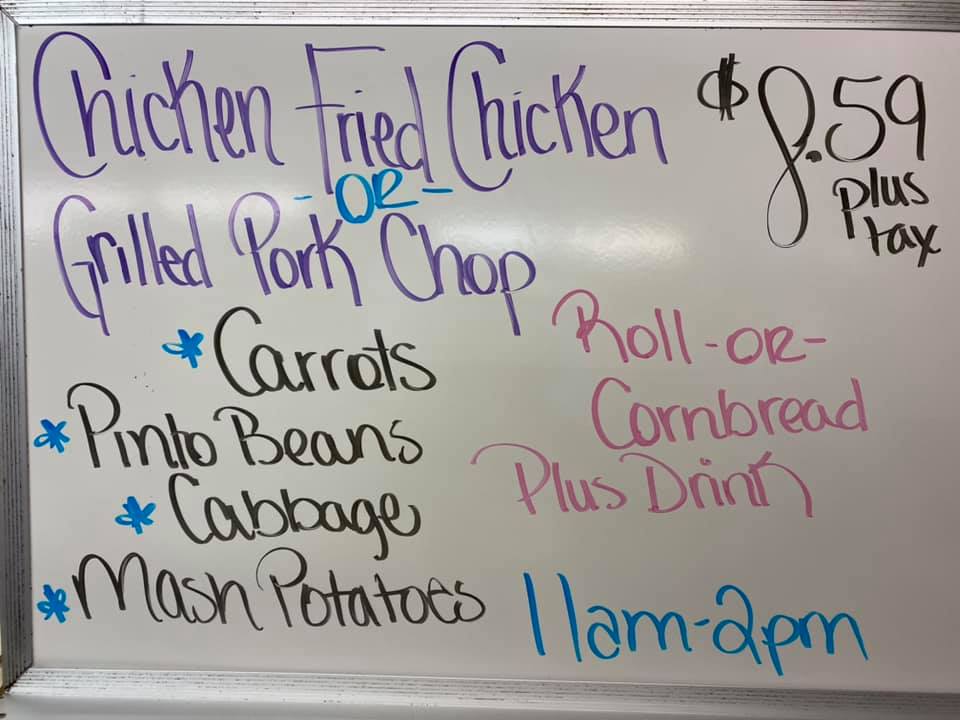 Chicken Fried Chicken
-OR-
Grilled Pork Chop
$8.59
plus
tax
* Carrots
* Pinto Beans
* Cabbage
* Mash Potatoes
Roll -OR-
Cornbread
Plus Drink
11am-2pm